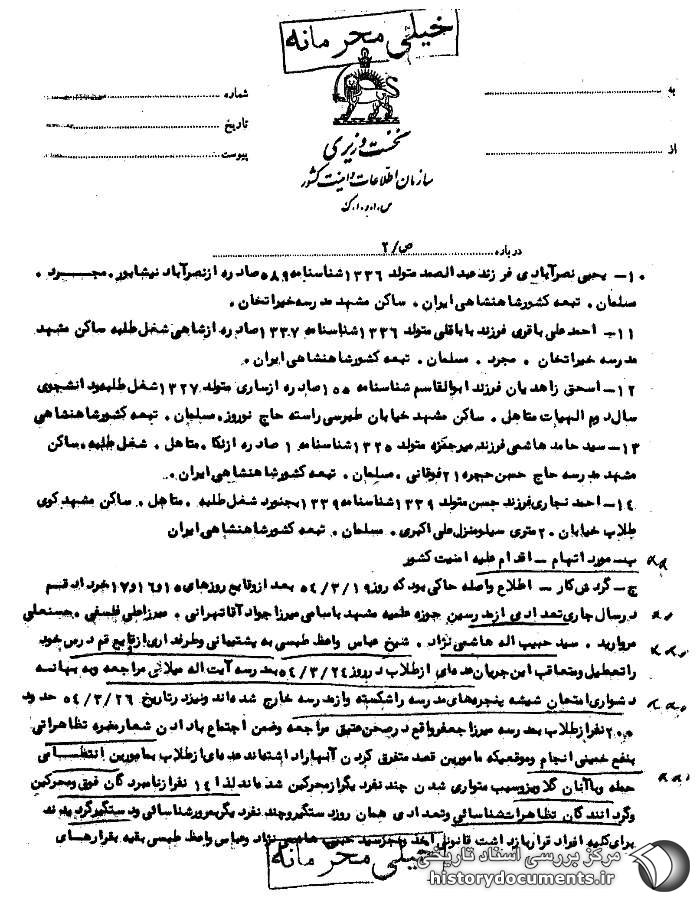 خیلی محرمانه
به
شماره
از
تاریخ
پیوست
نخست وزیری
سازمان اطلاعات و امنیت کشور
س.ا.و.ا.ک
درباره ص/۲
۱۰- یحیی نصرآبادی فرزند عبدالصمد متولد ۱۳۳۶ شناسنامه ۵۸۹ صادره از نصرآباد نیشابور. مجرد.
مسلمان. تبعه کشور شاهنشاهی ایران. ساکن مشهد مدرسه خیراتخان.
۱۱- احمدعلی باقری فرزند باباقلی متولد ۱۳۳۶ شناسنامه ۱۳۳۷ صادره از شاهی شغل طلبه ساکن مشهد
مدرسه خیراتخان. مجرد. مسلمان. تبعه کشور شاهنشاهی ایران.
۱۲- اسحق زاهدیان فرزند ابوالقاسم شناسنامه ۱۵۵ صادره از ساری متولد ۱۳۲۷ شغل طلبه ودانشجوی
سال دوم الهیات متاهل. ساکن مشهد خیابان طبرسی راسته حاج نوروز. مسلمان. تبعه کشور شاهنشاهی
۱۳- سید حامد هاشمی فرزند میرجعفره متولد ۱۳۲۵ شناسنامه ۱ صادره از نکا. متاهل. شغل طلبه. ساکن
مشهد مدرسه حاج حسن حجره ۲۱ فوقانی. مسلمان. تبعه کشور شاهنشاهی ایران.
۱۴- احمد نجاری فرزند حسن متولد ۱۳۳۹ شناسنامه ۱۳۳۹ بجنورد شغل طلبه. متاهل. ساکن مشهد کوی
طلاب خیابان ۲۰ متری سیلو منزل علی اکبری. مسلمان. تبعه کشور شاهنشاهی ایران
ب- مورد اتهام - اقدام علیه امنیت کشور
ج- گردش کار - اطلاع واصله حاکی بود که روز ۵۴/۳/۱۹ بعد از وقایع روزهای ۱۵ و ۱۶ و ۱۷ خرداد قسم
درسال جاری تعدادی از مدرسین حوزه علمیه مشهد باسامی میرزا جواد آقا تهرانی. میرزا علی فلسفی. حسنعلی
مروارید. سید حبیب اله هاشمی نژاد. شیخ عباس واعظ طبسی به پشتیبانی وطرفداری از وقایع قم درس خود
را تعطیل ومتعاقب این جریان عده ای از طلاب در روز ۵۴/۳/۲۴ بمدرسه آیت اله میلانی مراجعه و به بهانه
دشواری امتحان شیشه پنجره های مدرسه را شکسته واز مدرسه خارج شده اند ونیز در تاریخ ۵۴/۳/۲۶ حدود
۲۰۰ نفر از طلاب بمدرسه میرزا جعفر واقع در صحن عتیق مراجعه وضمن اجتماع با دادن شعار مضره تظاهراتی
بنفع خمینی انجام وموقعیکه مامورین قصد متفرق کردن آنهارا داشته اند عده ای از طلاب بمامورین انتظامی
حمله وبا آنان گلاویز وسبب متواری شدن چند نفر دیگر از محرکین شده اند لذا ۱۴ نفر از نامبردگان فوق ومحرکین
وگردانندگان تظاهرات شناسائی وتعدادی همان روز دستگیر وچند نفر دیگر بمرور شناسائی و دستگیر گردیدند
برای کلیه افراد قرار بازداشت قانونی اخذ وبجز سید حبیب هاشمی نژاد وعباس واعظ طبسی بقیه بقرارهای
خیلی محرمانه
مرکز بررسی اسناد تاریخی
historydocuments.ir